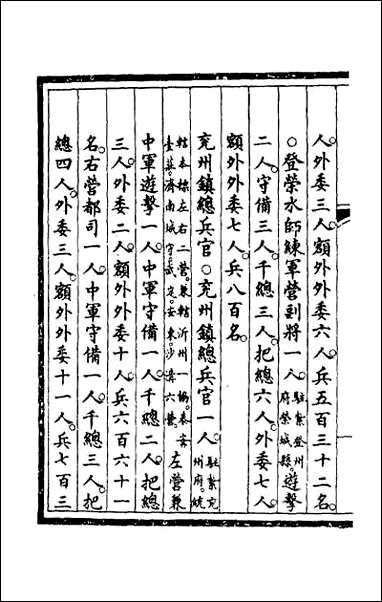 人外委三人額外外委六人兵五百三十二名
○登榮水師練軍營副將一人駐紮登州府榮城縣遊擊
二人守備三人千總三人把總六人外委七人
額外外委七人兵八百名
兗州鎮總兵官○兗州鎮總兵官一人駐紮兗州府統
轄本標左右二營兼轄沂州一協泰安臺莊濟南城守武定安東沙溝六營左營兼
中軍遊擊一人中軍守備一人千總二人把總
三人外委二人額外外委十人兵六百六十一
名右營都司一人中軍守備一人千總三人把
總四人外委三人額外外委十一人兵七百三